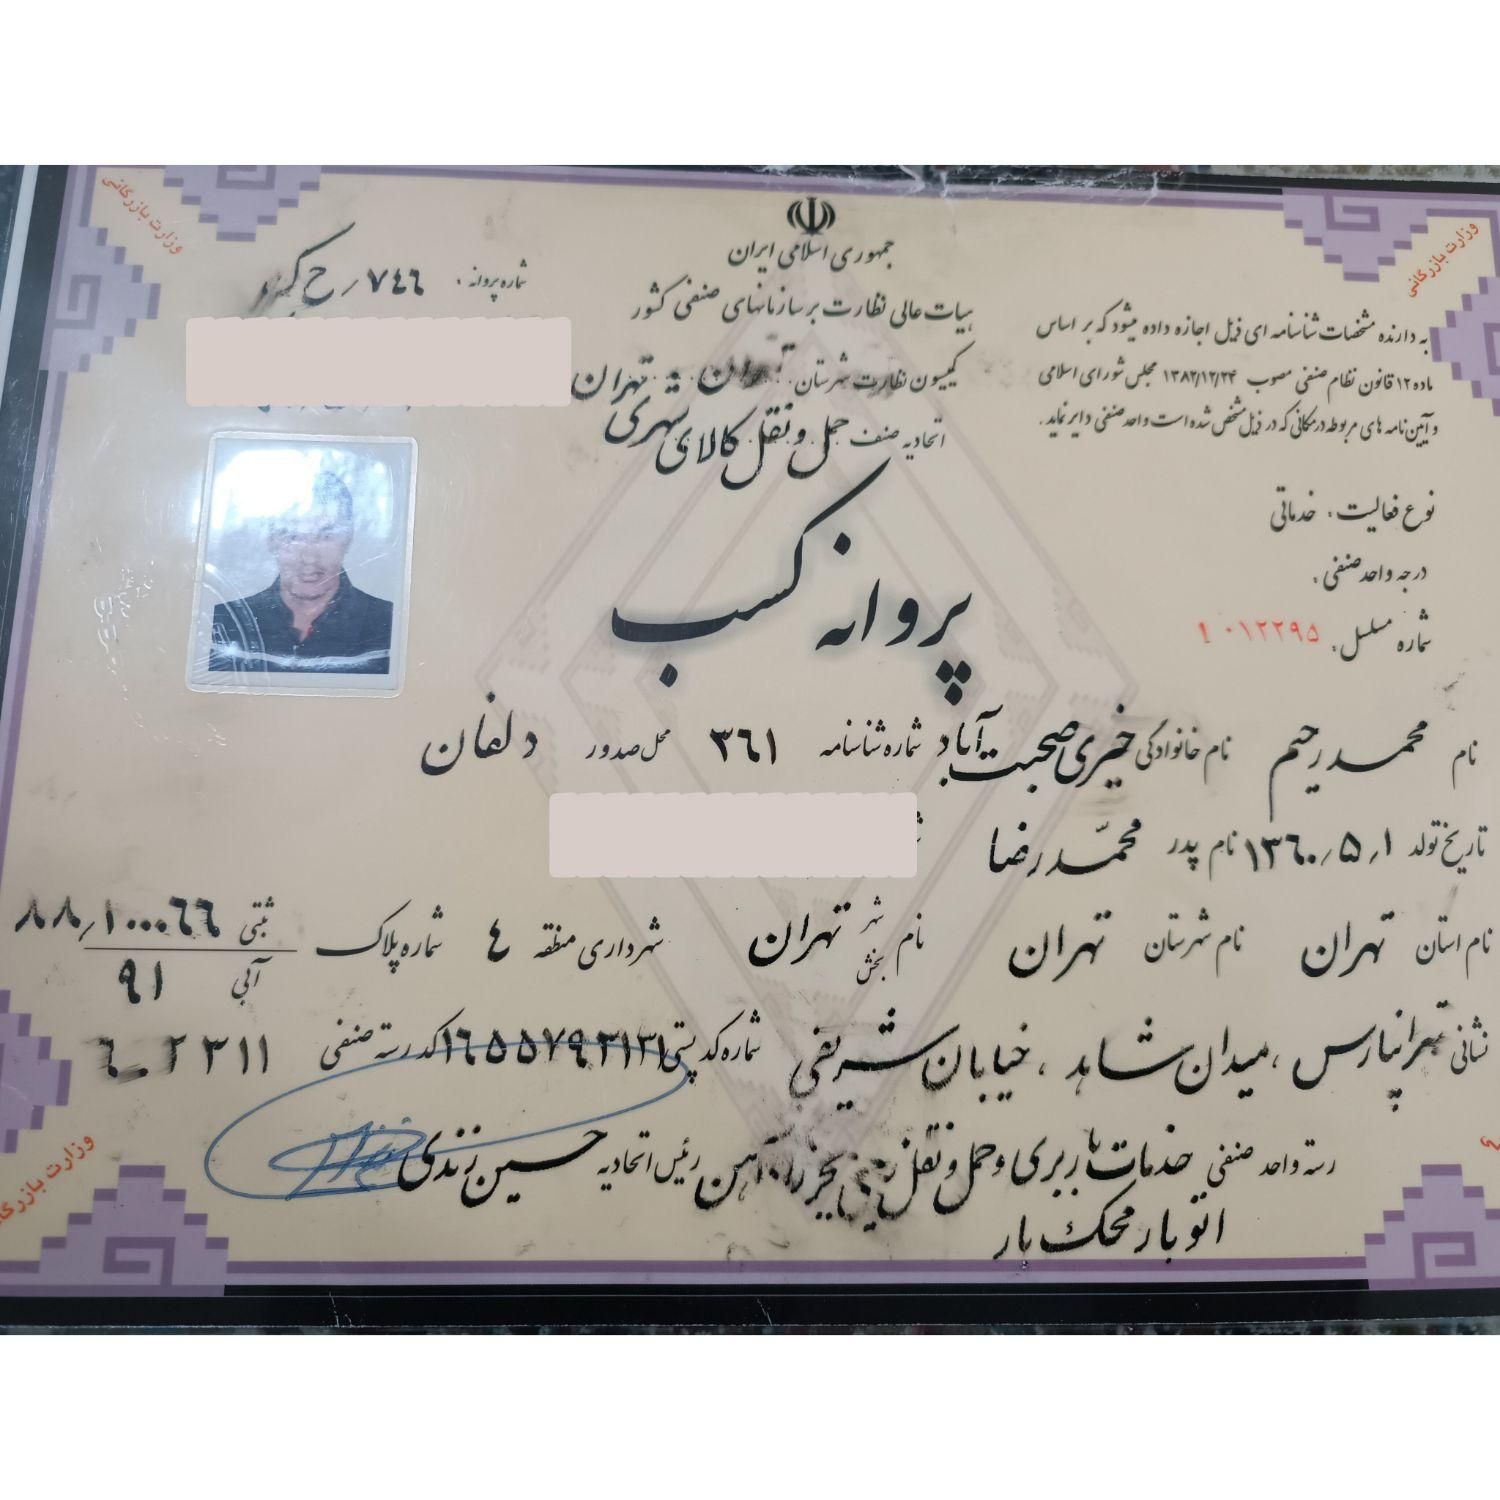 وزارت بازرگانی
وزارت بازرگانی
جمهوری اسلامی ایران
هیات عالی نظارت بر سازمانهای صنفی کشور
کمیسیون نظارت شهرستان: تهران - تهران
اتحادیه صنف حمل و نقل کالای شهری
شماره پروانه: ۷٤٦/ح
به دارنده مشخصات شناسنامه ای ذیل اجازه داده میشود که بر اساس
ماده ۱۲ قانون نظام صنفی مصوب ۱۳۸۲/۱۲/۲۴ مجلس شورای اسلامی
و آیین نامه های مربوطه در مکانی که در ذیل مشخص شده است واحد صنفی دایر نماید.
پروانه کسب
نوع فعالیت: خدماتی
درجه واحد صنفی:
شماره مسلسل: ۱۰۱۲۲۹۵
نام محمدرحیم نام خانوادگی خیری صحبت آباد شماره شناسنامه ۳٦۱ محل صدور دلفان
تاریخ تولد ۱/۵/۱۳٦۰ نام پدر محمّدرضا
نام استان تهران نام شهرستان تهران نام شهر بخش تهران شهرداری منطقه ٤ شماره پلاک ثبتی ۸۸/۱۰۰۰٦٦
آبی ۹۱
نشانی تهرانپارس، میدان شاهد، خیابان شریفی شماره کد پستی ۱٦۵۵۷۹۳۱۳۱ کد رسته صنفی
رسته واحد صنفی خدمات باربری و حمل و نقل زمینی بجز راه آهن رئیس اتحادیه حسین زندی
اتوبار محک بار
وزارت بازرگانی